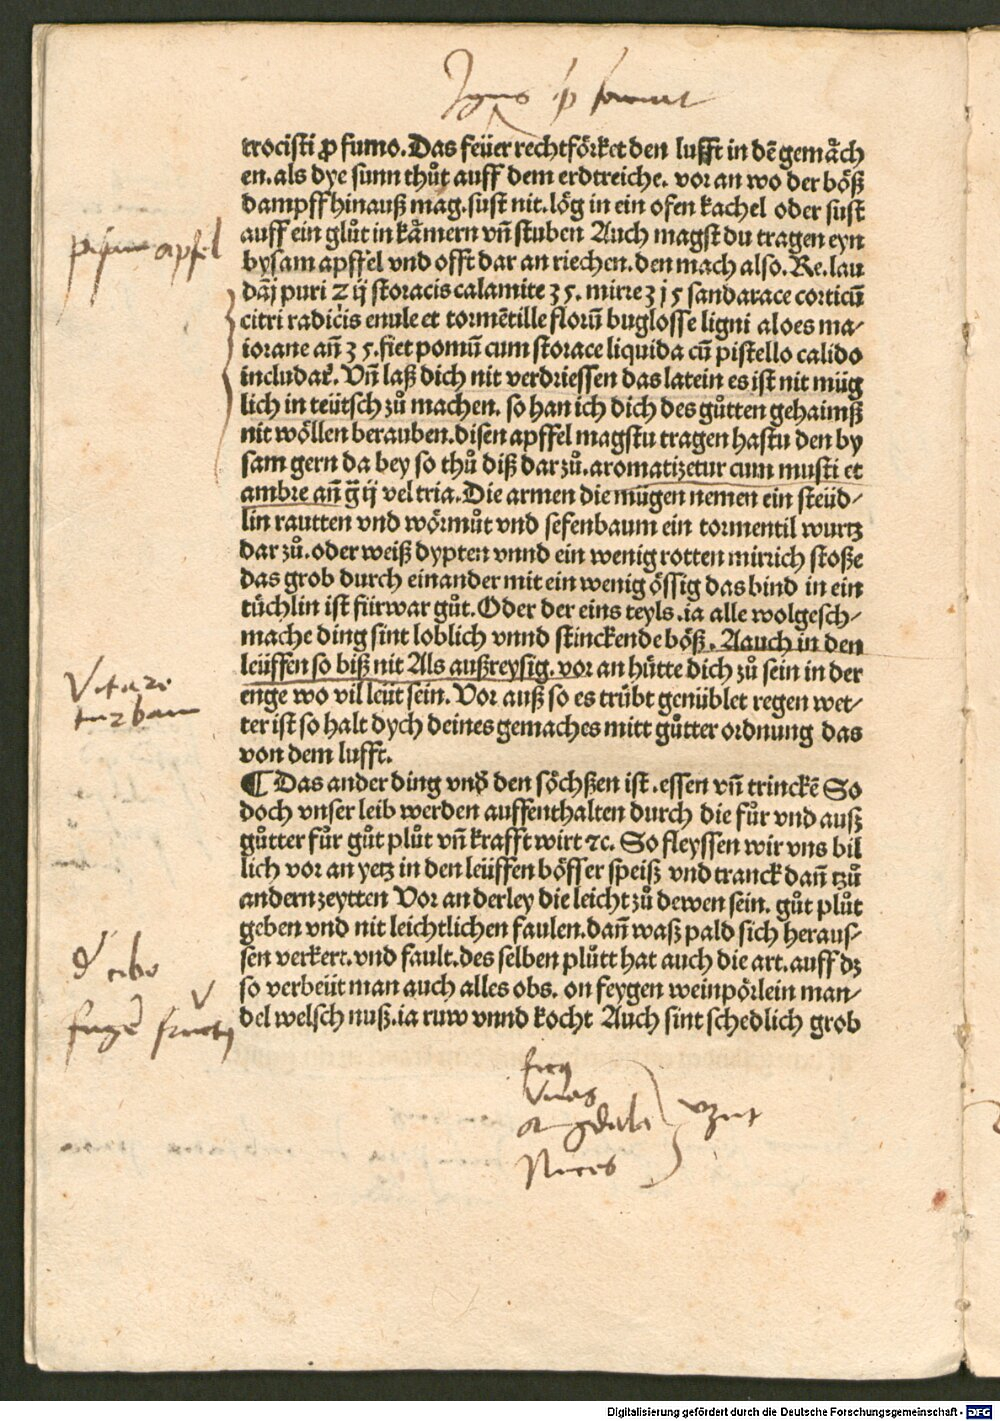 trocisti ꝓ fumo. Das feüer rechtförket den lufft in dē gemåch
en. als dye sunn thůt auff dem erdtreiche. vor an wo der böß
dampff hinauß mag. sust nit. lög in ein ofen kachel oder sust
auff ein glůt in kåmern vñ stuben Auch magst du tragen eyn
pisam apfel
bysam apffel vnd offt dar an riechen. den mach also. Re. lau
dāj puri ij storacis calamite ʒ 5. mirre ʒ j 5 sandarace corticū
citri radicis enule et tormētille florū buglosse ligni aloes ma/
iorane añ ʒ 5. fiet pomū cum storace liquida cū pistello calido
includat᷒. Vñ laß dich nit verdriessen das latein es ist nit müg
lich in teütsch zů machen. so han ich dich des gůtten gehaimß
nit wöllen berauben. disen apffel magstu tragen hastu den by
sam gern da bey so thů diß dar zů. aromatizetur cum musti et
ambre añ g̃ ij vel tria. Die armen die mügen nemen ein steüd/
lin rautten vnd wörmůt vnd sefenbaum ein tormentil wurtz
dar zů. oder weiß dypten vnnd ein wenig rotten mirrich stoße
das grob durch einander mit ein wenig össig das bind in ein
tüchlin ist fürwar gůt. Oder der eins teyls. ia alle wolgesch/
mache ding sint loblich vnnd stinckende böß. Aauch in den
leüffen so biß nit Als außreysig. vor an hütte dich zů sein in der
Vitare
turbam
enge wo vil leüt sein. Vor auß so es trübt genüblet regen wet/
ter ist so halt dych deines gemaches mitt gůtter ordnung das
von dem lufft.
¶ Das ander ding vnd̕ den söchßen ist. essen vñ trinckē So
doch vnser leib werden auffenthalten durch die fůr vnd auß
gůtter fůr gůt plůt vñ krafft wirt ⁊c. So fleyssen wir vns bil
lich vor an yetz in den leüffen böffer speiß vnd tranck dañ tzů
andern zeytten Vor an derley die leicht zů dewen sein. gůt plůt
geben vnd nit leichtlichen faulen. dañ waß pald sich heraus/
sen verkert. vnd fault. des selben plůtt hat auch die art. auff dz
cibo
so verbeüt man auch alles obs. on feygen weinpörlein man/
del welsch nuß. ia ruw vnnd kocht Auch sint schedlich grob
ficus
Vuas
amigdala
Nuces
Digitalisierung gefördert durch die Deutsche Forschungsgemeinschaft - DFG